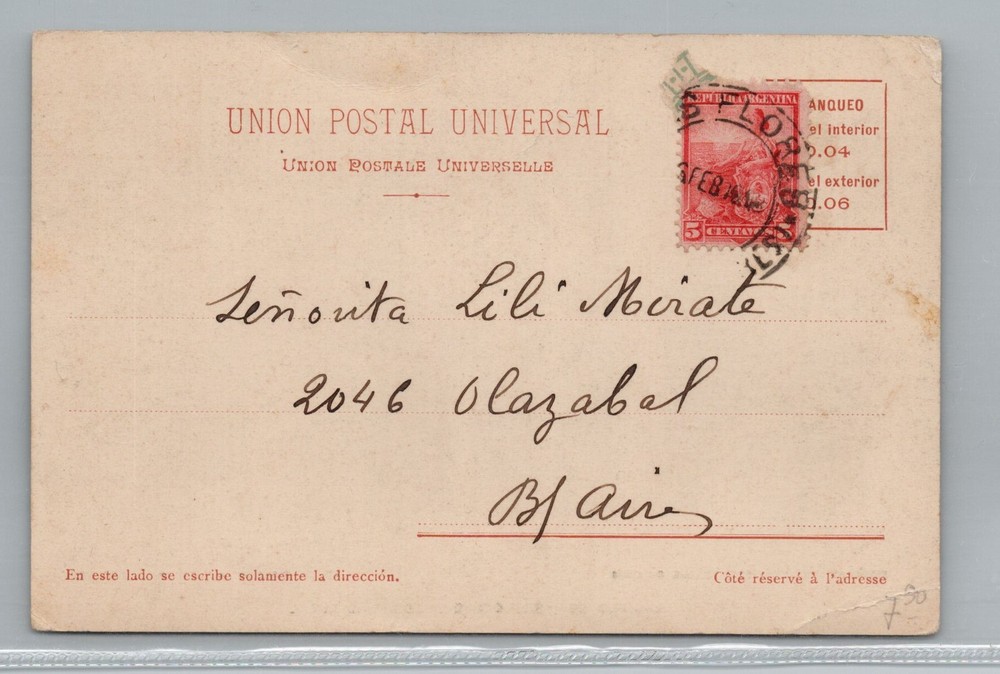 UNION POSTAL UNIVERSAL
UNION POSTALE UNIVERSELLE
REPÚBLICA ARGENTINA
5
ANQUEO
el interior
0.04
el exterior
.06
FLORES
FEB
Señorita Lili Mirate
2046 Olazabal
B/ Aires
En este lado se escribe solamente la dirección.
Côté réservé à l'adresse
7 50